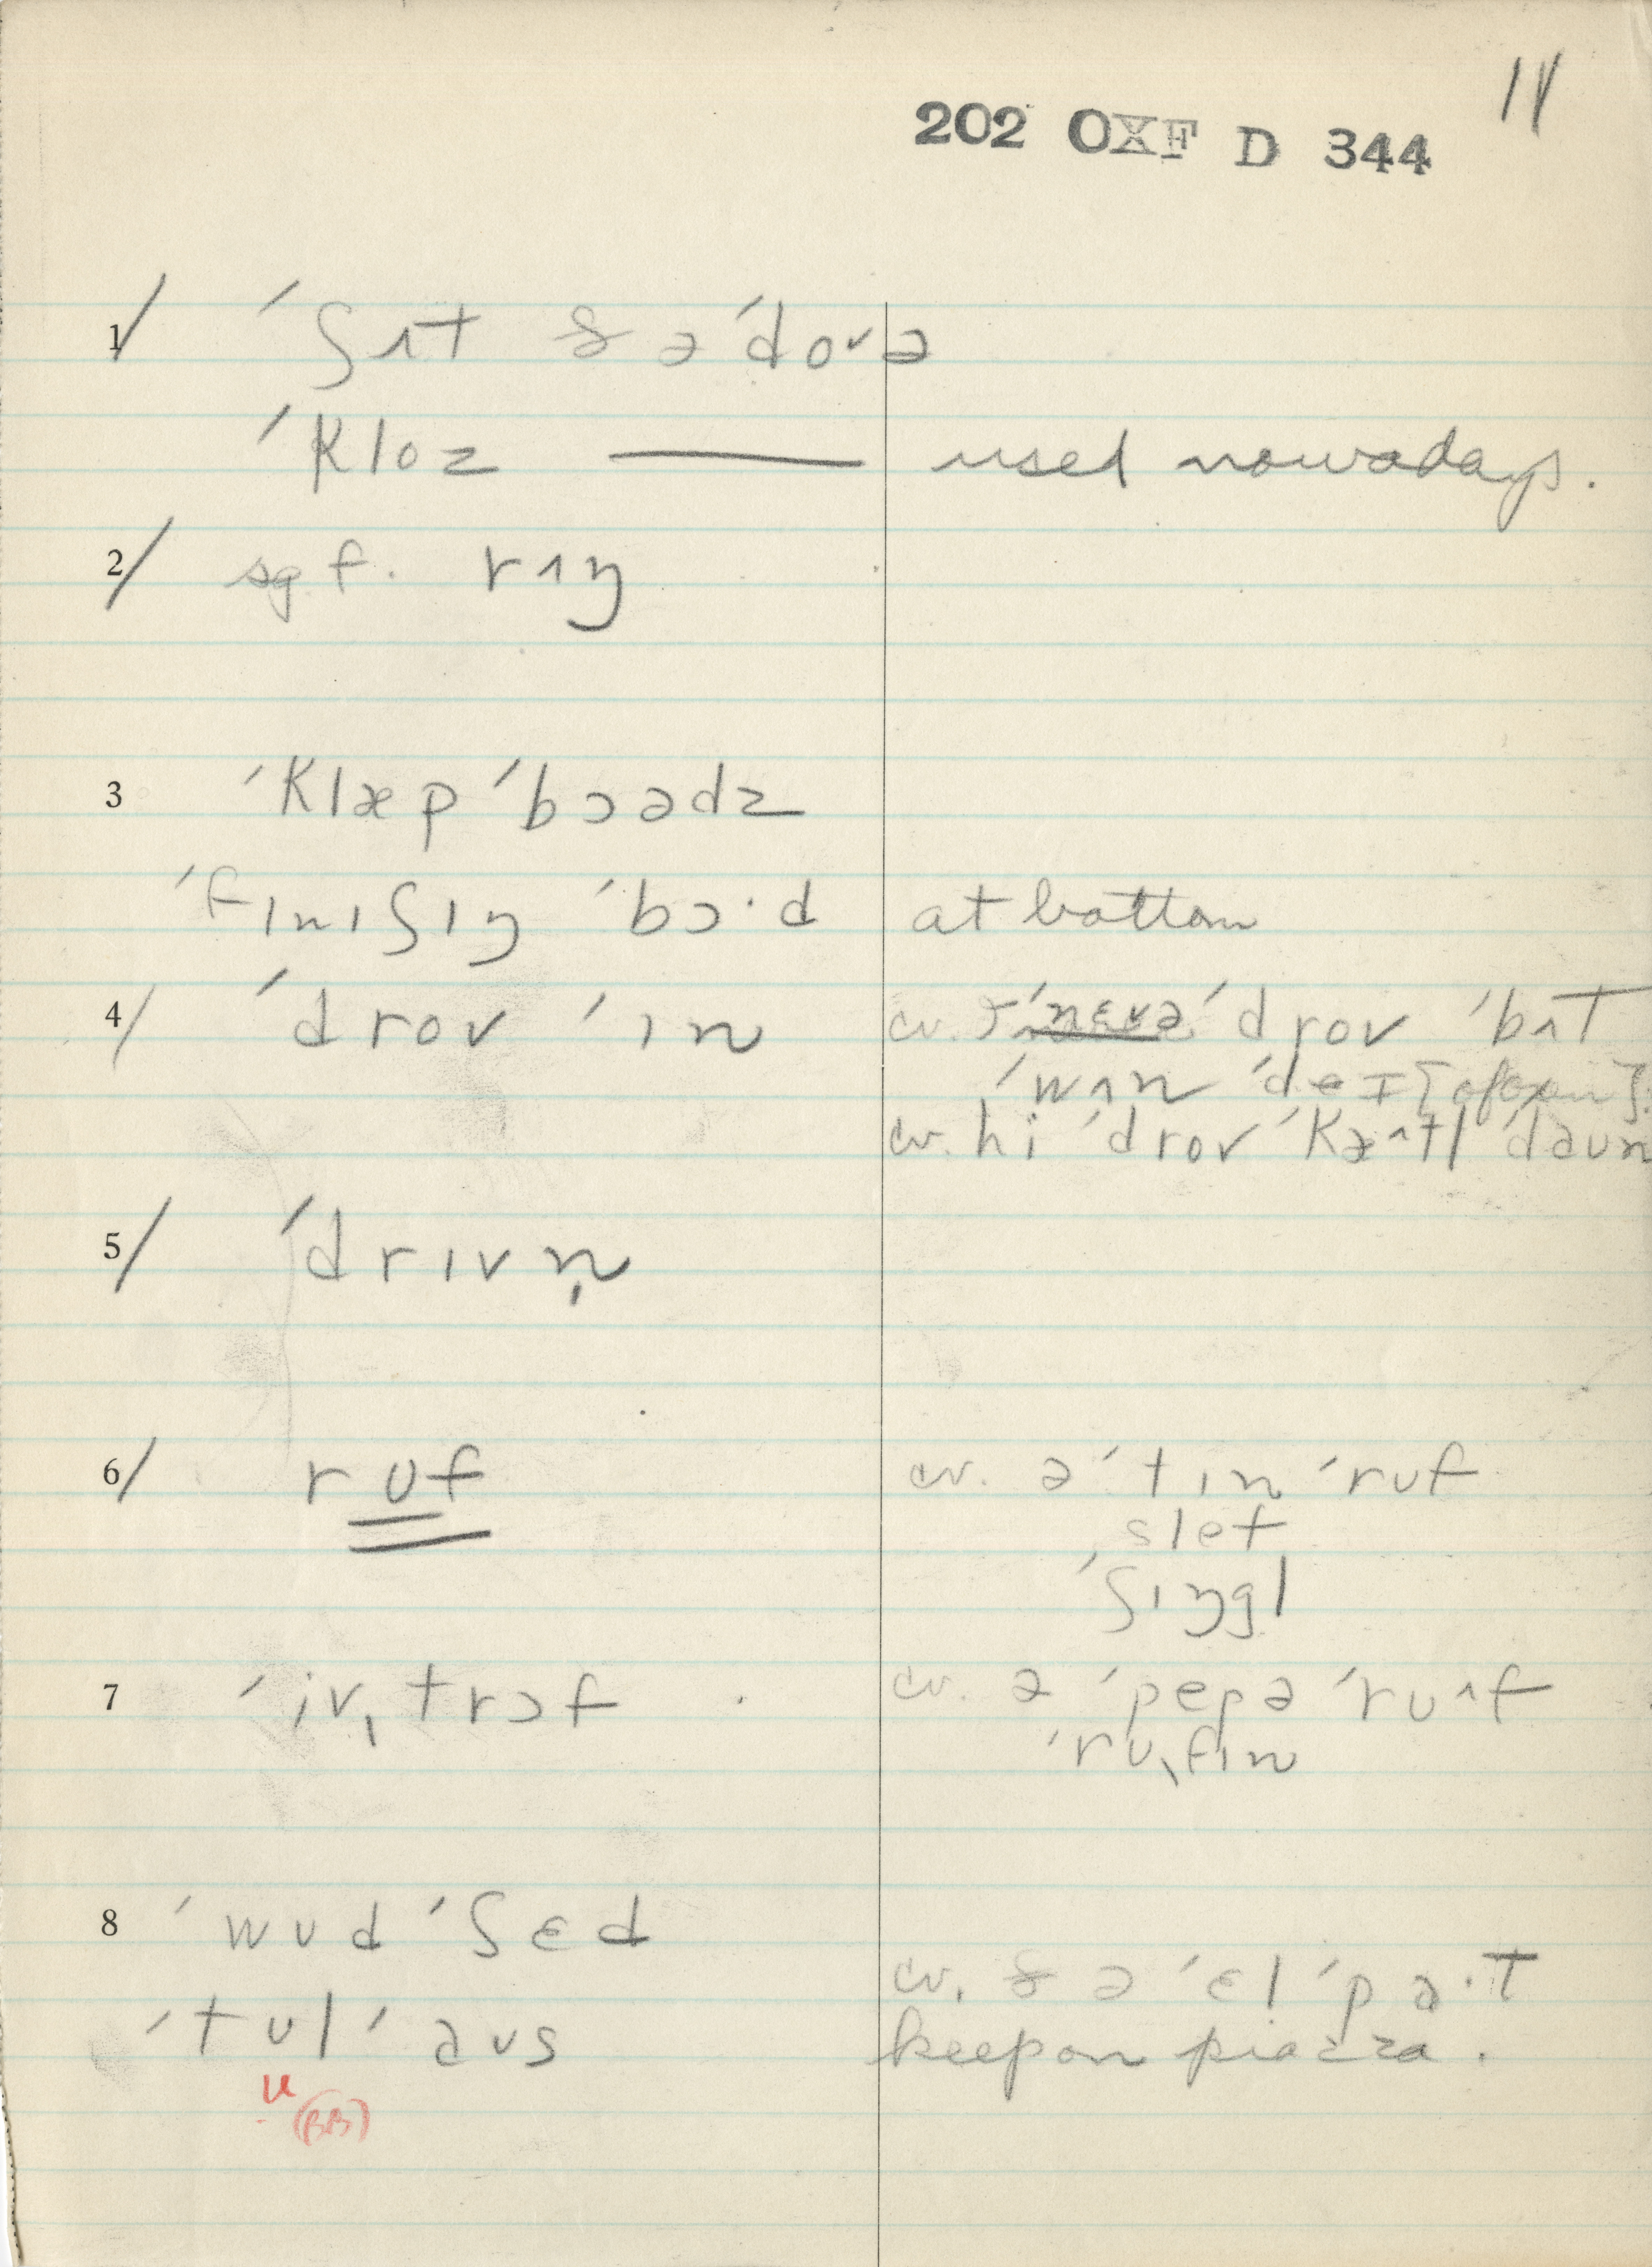 11
202 OXF D 344
1/ ˈʃʌt ðəˈdoᵛə
ˈkloz — used nowadays.
2/ sgf. rʌŋ
3 ˈklæpˈbɔədz
ˈfɪnɪʃɪŋ ˈbɔ·d at bottom
4/ ˈdrov ˈɪn cv. ˈnɛvə ˈdrov ˈbʌt
ˈwʌn ˈdeɪ [of oxen]
cv. hi ˈdrov ˈkæ^tl ˈdaun
5/ ˈdrɪvn̩
6/ rʊf cv. əˈtɪn ˈrʊf
slet
ˈʃɪŋgl
7 ˈivˌtrɔf cv. ə ˈpepə ˈrʊ^f
ˈrʊˌfɪn
8 ˈwʊdˈʃɛd
cv. ðəˈɛlˈpa·t
ˈtʊlˈaʊs keep on piazza.
u (BB)